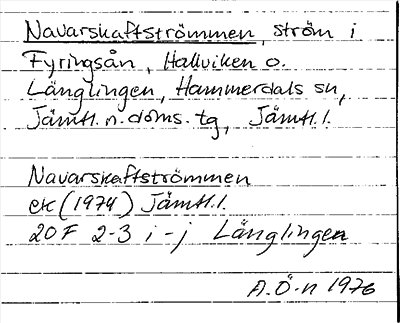 Navarskaftströmmen, ström i
Fyringsån, Hallviken o.
Länglingen, Hammerdals sn,
Jämtl. n. doms. tg, Jämtl. l.
Navarskaftströmmen
ek (1974) Jämtl. l.
20 F 2-3 i-j Länglingen
A.Ö-n 1976